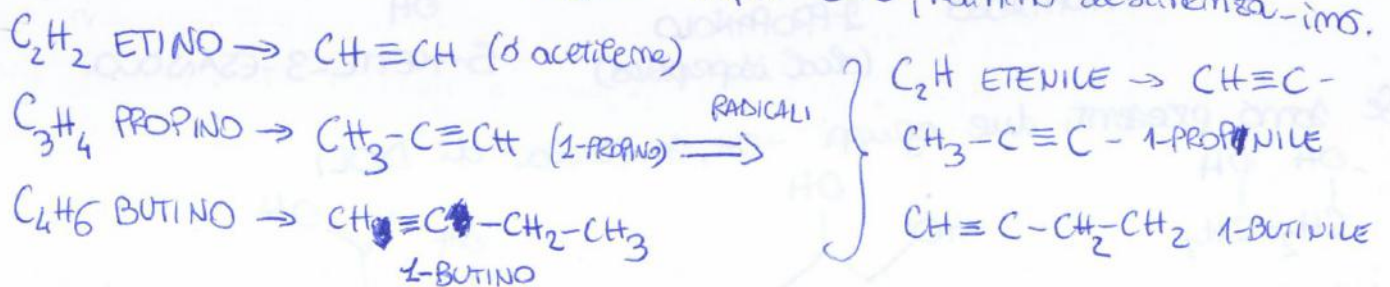 desinenza -ino.
C₂H₂ ETINO → CH≡CH (o acetilene)
C₃H₄ PROPINO → CH₃-C≡CH (1-PROPINO)
C₄H6 BUTINO → CH≡C-CH₂-CH₃
1-BUTINO
RADICALI
C₂H ETENILE → CH≡C-
CH₃-C≡C- 1-PROPINILE
CH≡C-CH₂-CH₂ 1-BUTINILE